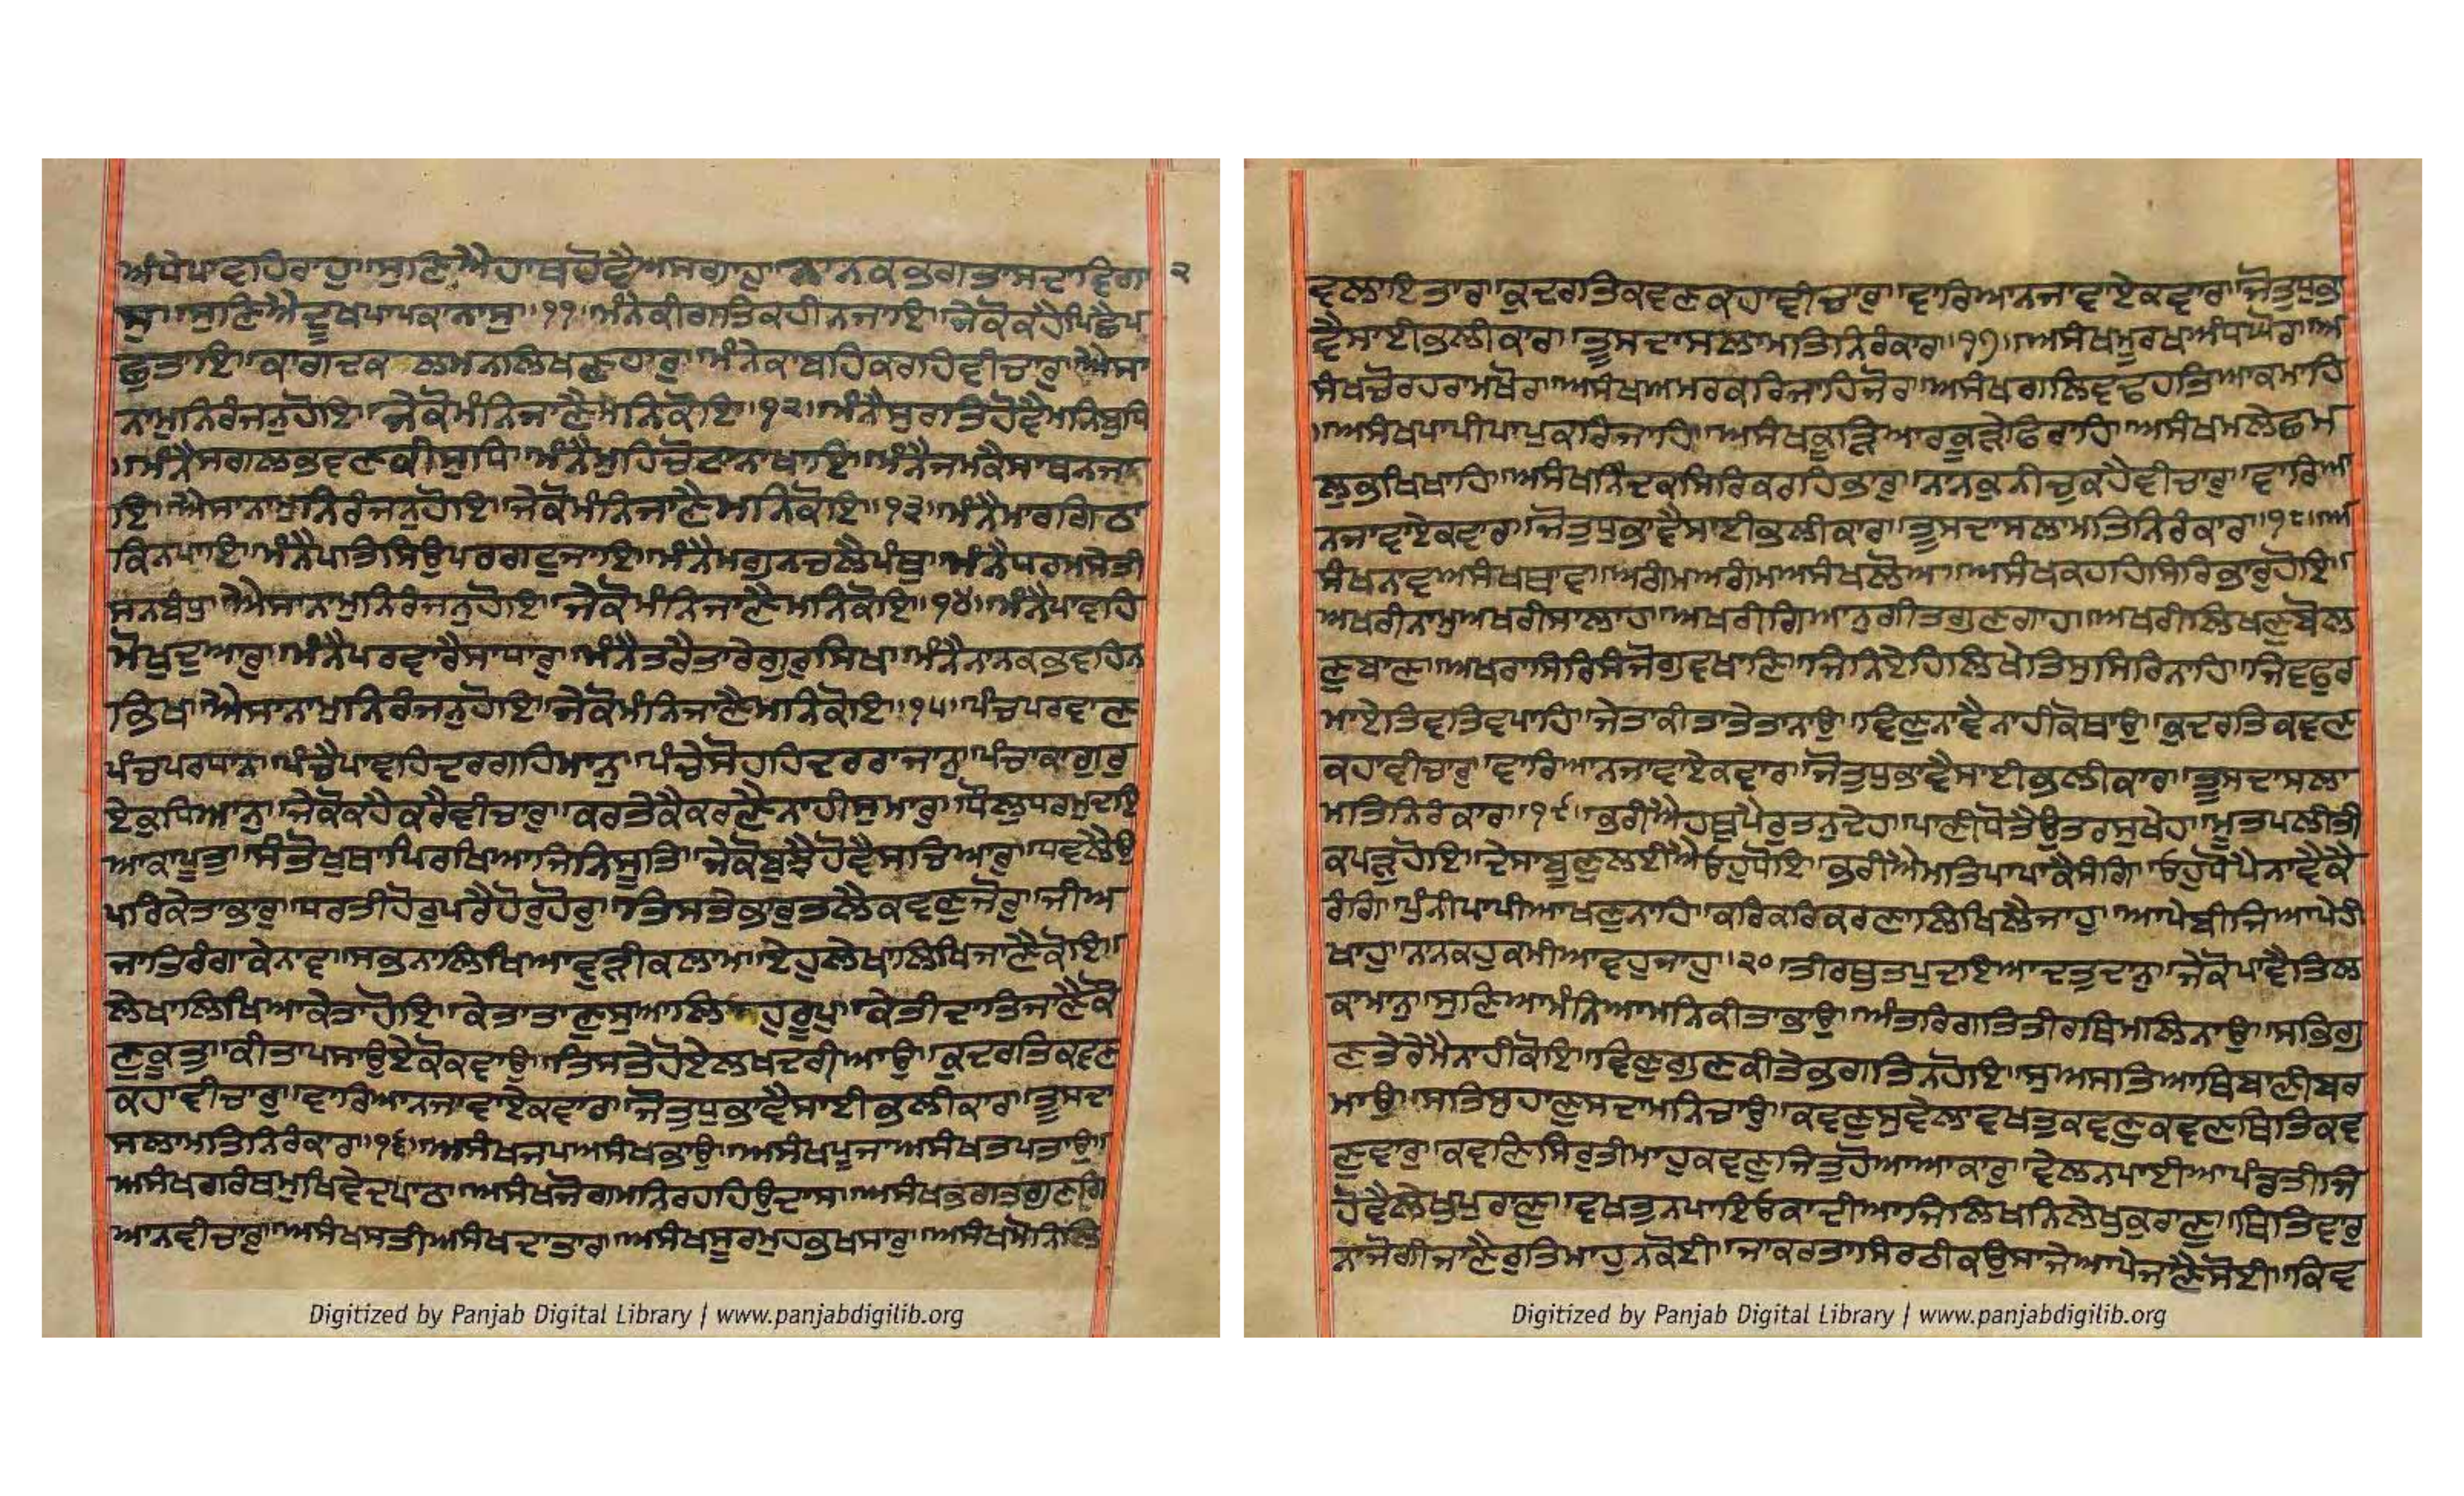 ਅੰਧੇਪਾਵਹਿਰਾਹੁ॥ਸੁਣਿਐਹਾਥਹੋਵੈਅਸਗਾਹੁ॥ਨਾਨਕਭਗਤਾਸਦਾਵਿਗਾ ੨
ਸੁ॥ਸੁਣਿਐਦੂਖਪਾਪਕਾਨਾਸੁ॥੧੧॥ਮੰਨੇਕੀਗਤਿਕਹੀਨਜਾਇ॥ਜੇਕੋਕਹੈਪਿਛੈਪ
ਛੁਤਾਇ॥ਕਾਗਦਕਲਮਨਲਿਖਣਹਾਰੁ॥ਮੰਨੇਕਾਬਹਿਕਰਹਿਵੀਚਾਰੁ॥ਐਸਾ
ਨਾਮੁਨਿਰੰਜਨੁਹੋਇ॥ਜੇਕੋਮੰਨਿਜਾਣੈਮਨਿਕੋਇ॥੧੨॥ਮੰਨੈਸੁਰਤਿਹੋਵੈਮਨਿਬੁਧਿ
॥ਮੰਨੈਸਗਲਭਵਣਕੀਸੁਧਿ॥ਮੰਨੈਮੁਹਿਚੋਟਾਨਾਖਾਇ॥ਮੰਨੈਜਮਕੈਸਾਥਨਜਾ
ਇ॥ਐਸਾਨਾਮੁਨਿਰੰਜਨੁਹੋਇ॥ਜੇਕੋਮੰਨਿਜਾਣੈਮਨਿਕੋਇ॥੧੩॥ਮੰਨੈਮਾਰਗਿਠਾ
ਕਿਨਪਾਇ॥ਮੰਨੈਪਤਿਸਿਉਪਰਗਟੁਜਾਇ॥ਮੰਨੈਮਗੁਨਚਲੈਪੰਥੁ॥ਮੰਨੈਧਰਮਸੇਤੀ
ਸਨਬੰਧੁ॥ਐਸਾਨਾਮੁਨਿਰੰਜਨੁਹੋਇ॥ਜੇਕੋਮੰਨਿਜਾਣੈਮਨਿਕੋਇ॥੧੪॥ਮੰਨੈਪਾਵਹਿ
ਮੋਖੁਦੁਆਰੁ॥ਮੰਨੈਪਰਵਾਰੈਸਾਧਾਰੁ॥ਮੰਨੈਤਰੈਤਾਰੇਗੁਰੁਸਿਖ॥ਮੰਨੈਨਾਨਕਭਵਹਿਨ
ਭਿਖ॥ਐਸਾਨਾਮੁਨਿਰੰਜਨੁਹੋਇ॥ਜੇਕੋਮੰਨਿਜਾਣੈਮਨਿਕੋਇ॥੧੫॥ਪੰਚਪਰਵਾਣ
ਪੰਚਪਰਧਾਨੁ॥ਪੰਚੈਪਾਵਹਿਦਰਗਹਿਮਾਨੁ॥ਪੰਚੇਸੋਹਹਿਦਰਰਾਜਾਨੁ॥ਪੰਚਾਕਾਗੁਰੁ
ਏਕੁਧਿਆਨੁ॥ਜੇਕੋਕਹੈਕਰੈਵੀਚਾਰੁ॥ਕਰਤੇਕੈਕਰਣੈਨਾਹੀਸੁਮਾਰੁ॥ਧੌਲੁਧਰਮੁਦਇ
ਆਕਾਪੂਤੁ॥ਸੰਤੋਖੁਥਾਪਿਰਖਿਆਜਿਨਿਸੂਤਿ॥ਜੇਕੋਬੁਝੈਹੋਵੈਸਚਿਆਰੁ॥ਧਵਲੈਉ
ਪਰਿਕੇਤਾਭਾਰੁ॥ਧਰਤੀਹੋਰੁਪਰੈਹੋਰੁਹੋਰੁ॥ਤਿਸਤੇਭਾਰੁਤਲੈਕਵਣੁਜੋਰੁ॥ਜੀਅ
ਜਾਤਿਰੰਗਾਕੇਨਾਵ॥ਸਭਨਾਲਿਖਿਆਵੁੜੀਕਲਾਮ॥ਏਹੁਲੇਖਾਲਿਖਿਜਾਣੈਕੋਇ॥
ਲੇਖਾਲਿਖਿਆਕੇਤਾਹੋਇ॥ਕੇਤਾਤਾਣੁਸੁਆਲਿਹੁਰੂਪੁ॥ਕੇਤੀਦਾਤਿਜਾਣੈਕੌ
ਣੁਕੂਤੁ॥ਕੀਤਾਪਸਾਉਏਕੋਕਵਾਉ॥ਤਿਸਤੇਹੋਏਲਖਦਰੀਆਉ॥ਕੁਦਰਤਿਕਵਣ
ਕਹਾਵੀਚਾਰੁ॥ਵਾਰਿਆਨਜਾਵਾਏਕਵਾਰ॥ਜੋਤੁਧੁਭਾਵੈਸਾਈਭਲੀਕਾਰ॥ਤੂਸਦਾ
ਸਲਾਮਤਿਨਿਰੰਕਾਰ॥੧੬॥ਅਸੰਖਜਪਅਸੰਖਭਾਉ॥ਅਸੰਖਪੂਜਾਅਸੰਖਤਪਤਾਉ॥
ਅਸੰਖਗਰੰਥਮੁਖਿਵੇਦਪਾਠ॥ਅਸੰਖਜੋਗਮਨਿਰਹਹਿਉਦਾਸ॥ਅਸੰਖਭਗਤਗੁਣਗਿ
ਆਨਵੀਚਾਰੁ॥ਅਸੰਖਸਤੀਅਸੰਖਦਾਤਾਰ॥ਅਸੰਖਸੂਰਮੁਹਭਖਸਾਰੁ॥ਅਸੰਖਮੋਨਿਲਿ
ਵਲਾਇਤਾਰ॥ਕੁਦਰਤਿਕਵਣਕਹਾਵੀਚਾਰੁ॥ਵਾਰਿਆਨਜਾਵਾਏਕਵਾਰ॥ਜੋਤੁਧੁਭਾ
ਵੈਸਾਈਭਲੀਕਾਰ॥ਤੂਸਦਾਸਲਾਮਤਿਨਿਰੰਕਾਰ॥੧੭॥ਅਸੰਖਮੂਰਖਅੰਧਘੋਰ॥ਅ
ਸੰਖਚੋਰਹਰਾਮਖੋਰ॥ਅਸੰਖਅਮਰਕਰਿਜਾਹਿਜੋਰ॥ਅਸੰਖਗਲਿਵਢਹਤਿਆਕਮਾਹਿ
॥ਅਸੰਖਪਾਪੀਪਾਪੁਕਰਿਜਾਹਿ॥ਅਸੰਖਕੂੜਿਆਰਕੂੜੇਫਿਰਾਹਿ॥ਅਸੰਖਮਲੇਛਮ
ਲੁਭਖਿਖਾਹਿ॥ਅਸੰਖਨਿੰਦਕਸਿਰਿਕਰਹਿਭਾਰੁ॥ਨਾਨਕੁਨੀਚੁਕਹੈਵੀਚਾਰੁ॥ਵਾਰਿਆ
ਨਜਾਵਾਏਕਵਾਰ॥ਜੋਤੁਧੁਭਾਵੈਸਾਈਭਲੀਕਾਰ॥ਤੂਸਦਾਸਲਾਮਤਿਨਿਰੰਕਾਰ॥੧੮॥ਅ
ਸੰਖਨਾਵਅਸੰਖਥਾਵ॥ਅਗੰਮਅਗੰਮਅਸੰਖਲੋਅ॥ਅਸੰਖਕਹਹਿਸਿਰਿਭਾਰੁਹੋਇ॥
ਅਖਰੀਨਾਮੁਅਖਰੀਸਾਲਾਹ॥ਅਖਰੀਗਿਆਨੁਗੀਤਗੁਣਗਾਹ॥ਅਖਰੀਲਿਖਣੁਬੋਲ
ਣੁਬਾਣ॥ਅਖਰਾਸਿਰਿਸੰਜੋਗੁਵਖਾਣਿ॥ਜਿਨਿਏਹਿਲਿਖੇਤਿਸੁਸਿਰਿਨਾਹਿ॥ਜਿਵਫੁਰ
ਮਾਏਤਿਵਤਿਵਪਾਹਿ॥ਜੇਤਾਕੀਤਾਤੇਤਾਨਾਉ॥ਵਿਣੁਨਾਵੈਨਾਹੀਕੋਥਾਉ॥ਕੁਦਰਤਿਕਵਣ
ਕਹਾਵੀਚਾਰੁ॥ਵਾਰਿਆਨਜਾਵਾਏਕਵਾਰ॥ਜੋਤੁਧੁਭਾਵੈਸਾਈਭਲੀਕਾਰ॥ਤੂਸਦਾਸਲਾ
ਮਤਿਨਿਰੰਕਾਰ॥੧੯॥ਭਰੀਐਹਥੁਪੈਰੁਤਨੁਦੇਹ॥ਪਾਣੀਧੋਤੈਉਤਰਸੁਖੇਹ॥ਮੂਤਪਲੀਤੀ
ਕਪੜੁਹੋਇ॥ਦੇਸਾਬੂਣੁਲਈਐਓਹੁਧੋਇ॥ਭਰੀਐਮਤਿਪਾਪਾਕੈਸੰਗਿ॥ਓਹੁਧੋਪੈਨਾਵੈਕੈ
ਰੰਗਿ॥ਪੁੰਨੀਪਾਪੀਆਖਣੁਨਾਹਿ॥ਕਰਿਕਰਿਕਰਣਾਲਿਖਿਲੈਜਾਹੁ॥ਆਪੇਬੀਜਿਆਪੇਹੀ
ਖਾਹੁ॥ਨਾਨਕਹੁਕਮੀਆਵਹੁਜਾਹੁ॥੨੦॥ਤੀਰਥੁਤਪੁਦਇਆਦਤੁਦਾਨੁ॥ਜੇਕੋਪਾਵੈਤਿਲ
ਕਾਮਾਨੁ॥ਸੁਣਿਆਮੰਨਿਆਮਨਿਕੀਤਾਭਾਉ॥ਅੰਤਰਿਗਤਿਤੀਰਥਿਮਲਿਨਾਉ॥ਸਭਿਗੁ
ਣਤੇਰੇਮੈਨਾਹੀਕੋਇ॥ਵਿਣੁਗੁਣਕੀਤੇਭਗਤਿਨਹੋਇ॥ਸੁਅਸਤਿਆਥਿਬਾਣੀਬਰ
ਮਾਉ॥ਸਤਿਸੁਹਾਣੁਸਦਾਮਨਿਚਾਉ॥ਕਵਣੁਸੁਵੇਲਾਵਖਤੁਕਵਣੁਕਵਣਥਿਤਿਕਵ
ਣੁਵਾਰੁ॥ਕਵਣਿਸਿਰੁਤੀਮਾਹੁਕਵਣੁਜਿਤੁਹੋਆਆਕਾਰੁ॥ਵੇਲਨਪਾਈਆਪੰਡਤੀਜਿ
ਹੋਵੈਲੇਖੁਪੁਰਾਣੁ॥ਵਖਤੁਨਪਾਇਓਕਾਦੀਆਜਿਲਿਖਨਿਲੇਖੁਕੁਰਾਣੁ॥ਥਿਤਿਵਾਰੁ
ਨਾਜੋਗੀਜਾਣੈਰੁਤਿਮਾਹੁਨਕੋਈ॥ਜਾਕਰਤਾਸਿਰਠੀਕਉਸਾਜੇਆਪੇਜਾਣੈਸੋਈ॥ਕਿਵ
Digitized by Panjab Digital Library | www.panjabdigilib.org
Digitized by Panjab Digital Library | www.panjabdigilib.org